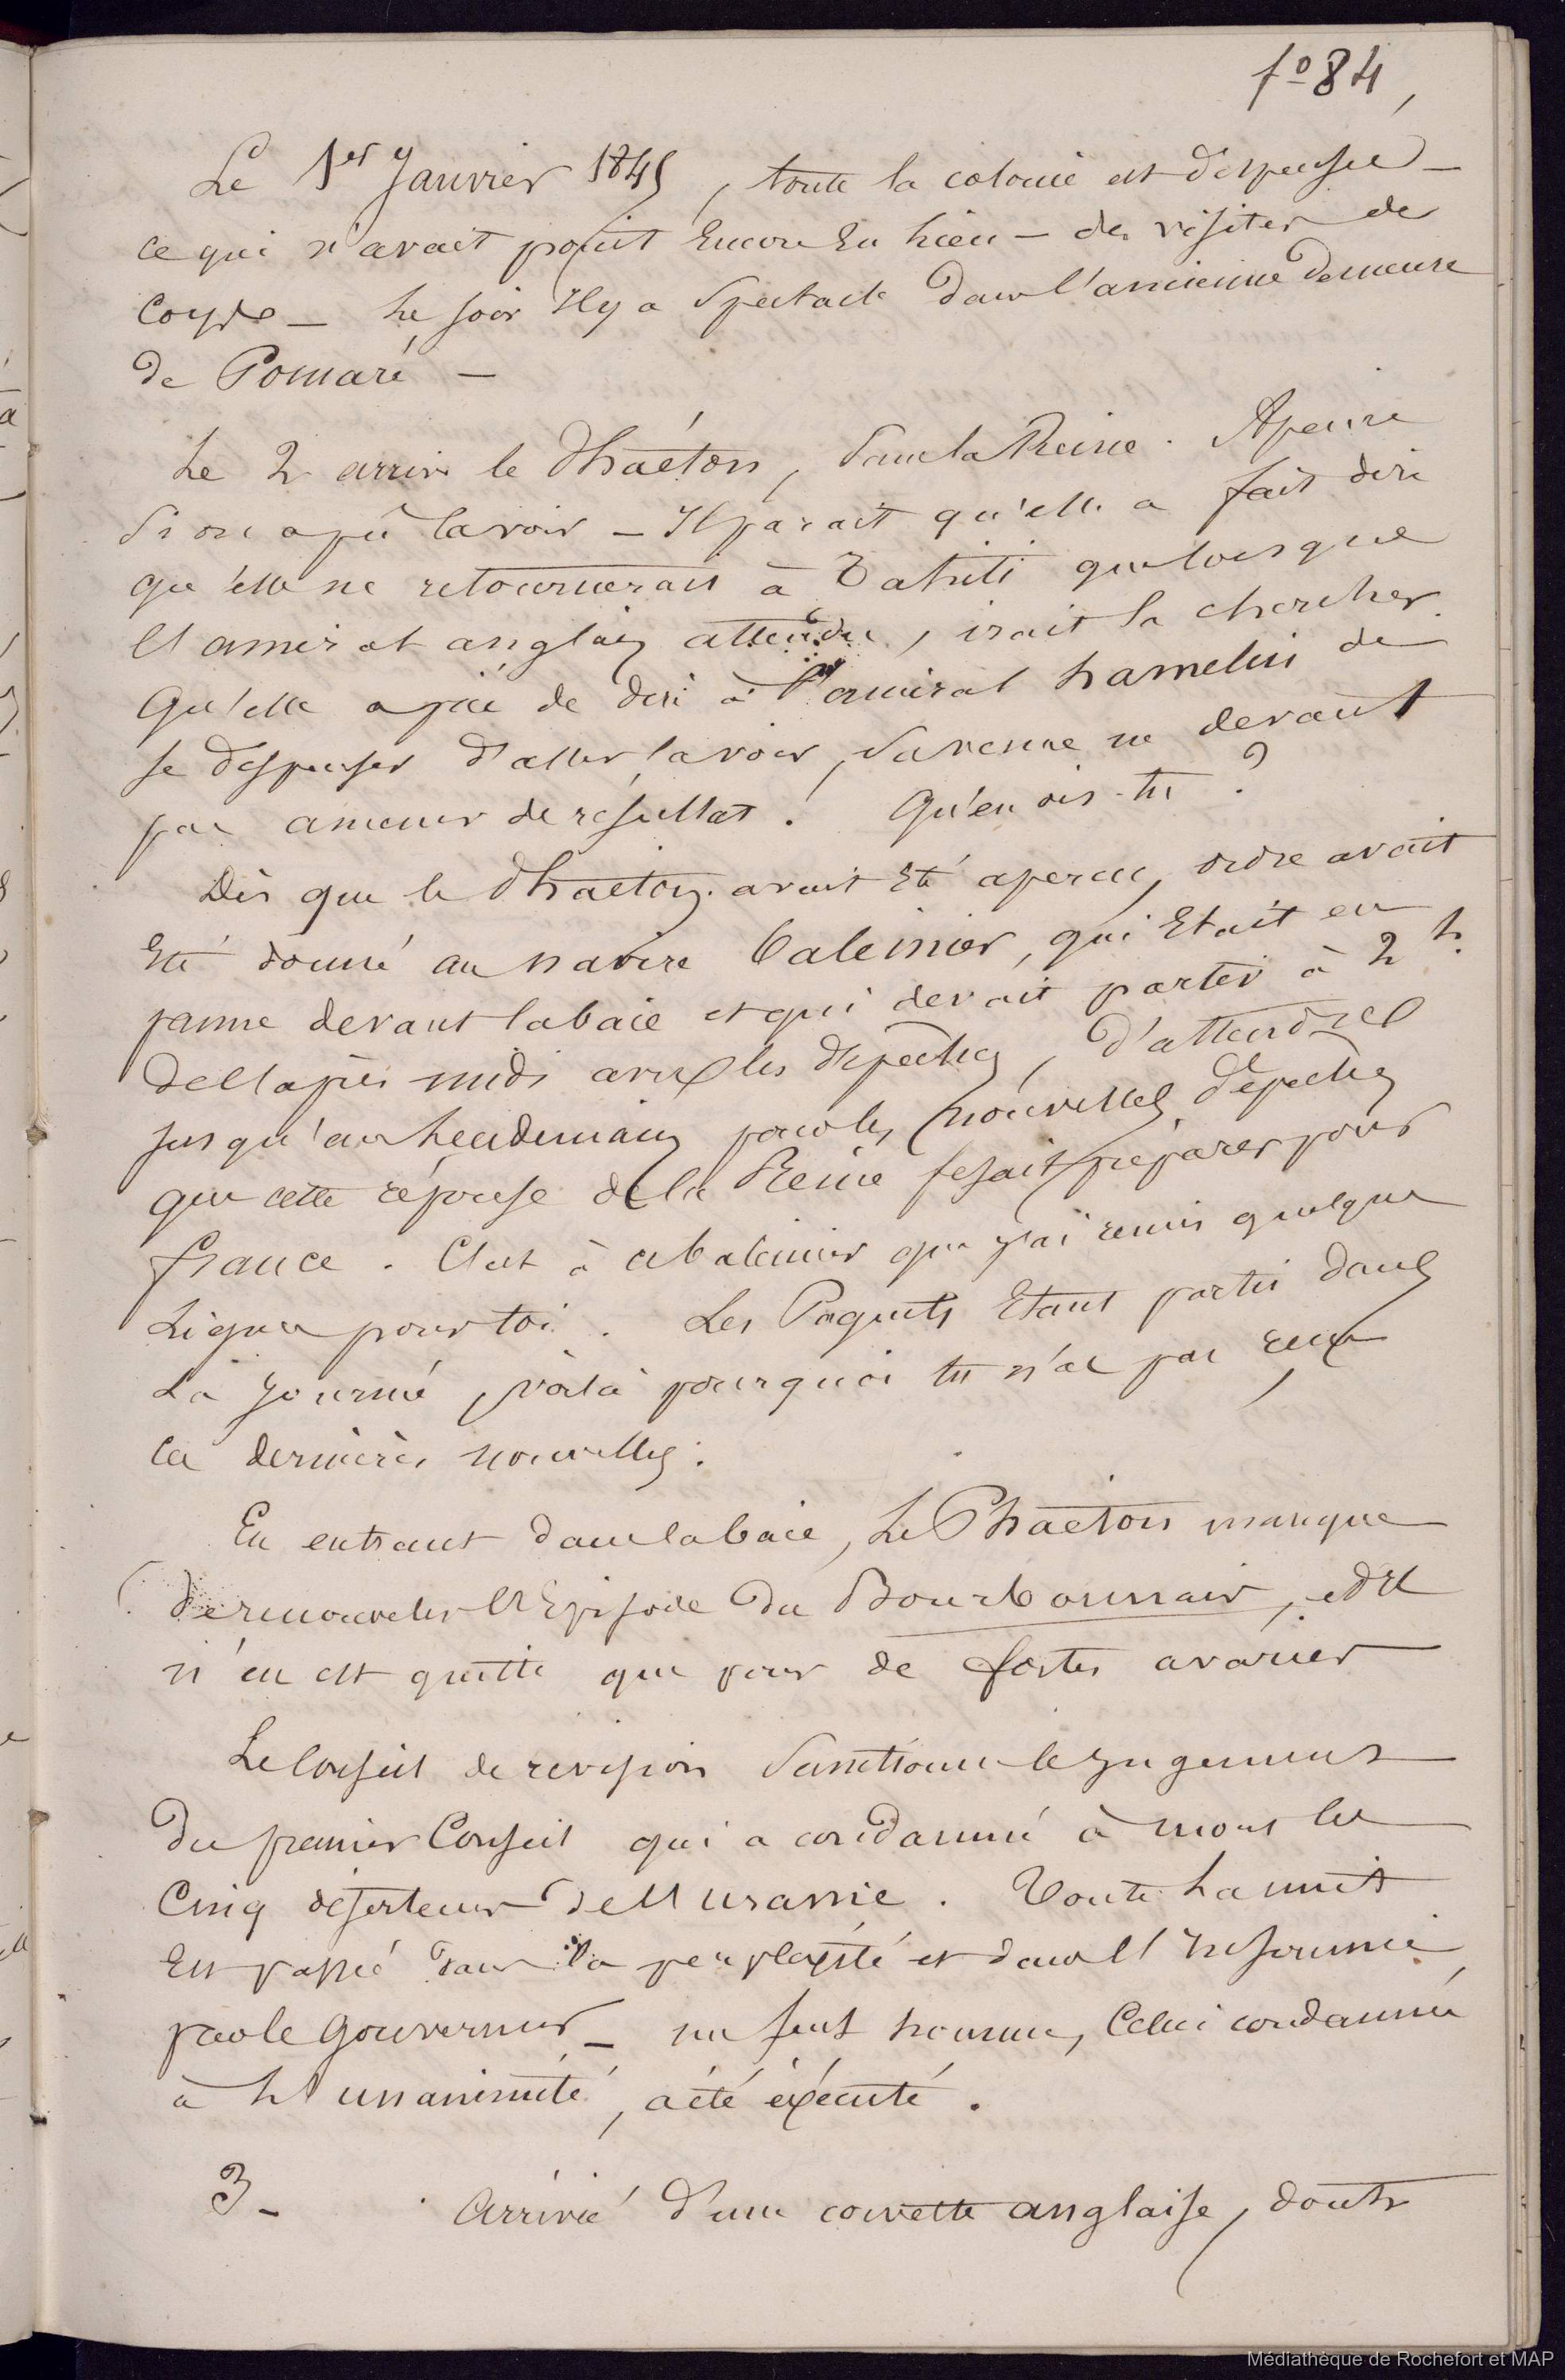 fº 84,
Le 1er Janvier 1845, toute la colonie est dispensée –
ce qui n'avait point Encore Eu lieu – des visites de
Corps – Le soir Il y a Spectacle dans l'ancienne demeure
de Pomaré –
Le 2 arrive le Phaéton, Sans la Reine. A peine
Si on a pu la voir – Il parait qu'elle a fait dire
qu'elle ne retournerait à Tahiti que lorsque
l'amiral anglais attendu, irait la chercher.
Qu'elle a prié de dire à l'amiral hamelin de
se dispenser d'aller la voir, Sa venue ne devant
pas amener de résultat. Qu'en dis-tu ?
Dès que le Phaéton avait Eté aperçu, ordre avait
Eté donné au navire baleinier, qui Etait en
panne devant la baie et qui devait partir à 2 h.
de l'après midi avec les dépêches, d'attendre
jusqu'au lendemain pour les nouvelles dépêches
que cette réponse de la Reine fesait préparer pour
france. C'est à ce baleinier que j'ai remis quelques
Lignes pour toi. Les Paquets Etant partis dans
La Journée, voilà pourquoi tu n'as pas reçu
ces dernières nouvelles.
En entrant dans la baie, Le Phaéton manque
de renouveler l'Episode du Bourbonnais, et Il
n'en est quitte que pour de fortes avaries
Le Conseil de revision Sanctionne le Jugement
du premier Conseil qui a condamné à mort les
Cinq déserteurs de l'Uranie. Toute La nuit
Est passée dans la perplexité et dans l'Insomnie,
par le Gouverneur – un seul homme, Celui condamné
à L'unanimité, a été éxécuté.
3 – Arrivée d'une corvette anglaise, dont
Médiathèque de Rochefort et MAP